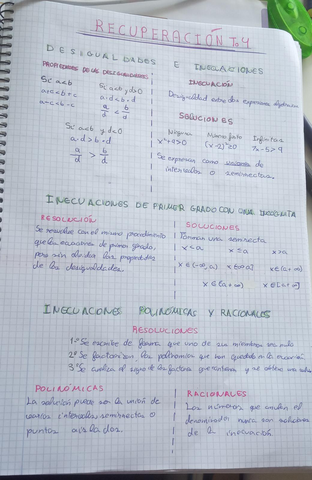 RECUPERACIÓN T.4
DESIGUALDADES E INECUACIONES
PROPIEDADES DE LAS DESIGUALDADES
Si a<b
a+c<b+c
a-c<b-c
Si a<b y d>0
a·d<b·d
a/d < b/d
Si a<b y d<0
a·d>b·d
a/d > b/d
INECUACIÓN
Desigualdad entre dos expresiones algebraicas
SOLUCIONES
Ninguna
Infinitas
(x-2)²≤0
7x-5>9
Se expresan como uniones de
intervalos o semirrectas.
INECUACIONES DE PRIMER GRADO CON UNA INCÓGNITA
RESOLUCIÓN
Se resuelve con el mismo procedimiento
que las ecuaciones de primer grado,
pero sin olvidar las propiedades
de las desigualdades.
SOLUCIONES
Forman una semirrecta
x<a
x≤a
x>a
x∈(-∞,a)
INECUACIONES POLINÓMICAS Y RACIONALES
RESOLUCIONES
1º Se escribe de forma que uno de sus miembros sea nulo
2º Se factorizan los polinomios que han quedado en la ecuación
3º Se analiza el signo de los factores y se obtiene
POLINÓMICAS
La solución puede ser la unión de
varios intervalos, semirrectas o
puntos aislados.
RACIONALES
Los números que anulan el
denominador nunca son soluciones
de la inecuación.